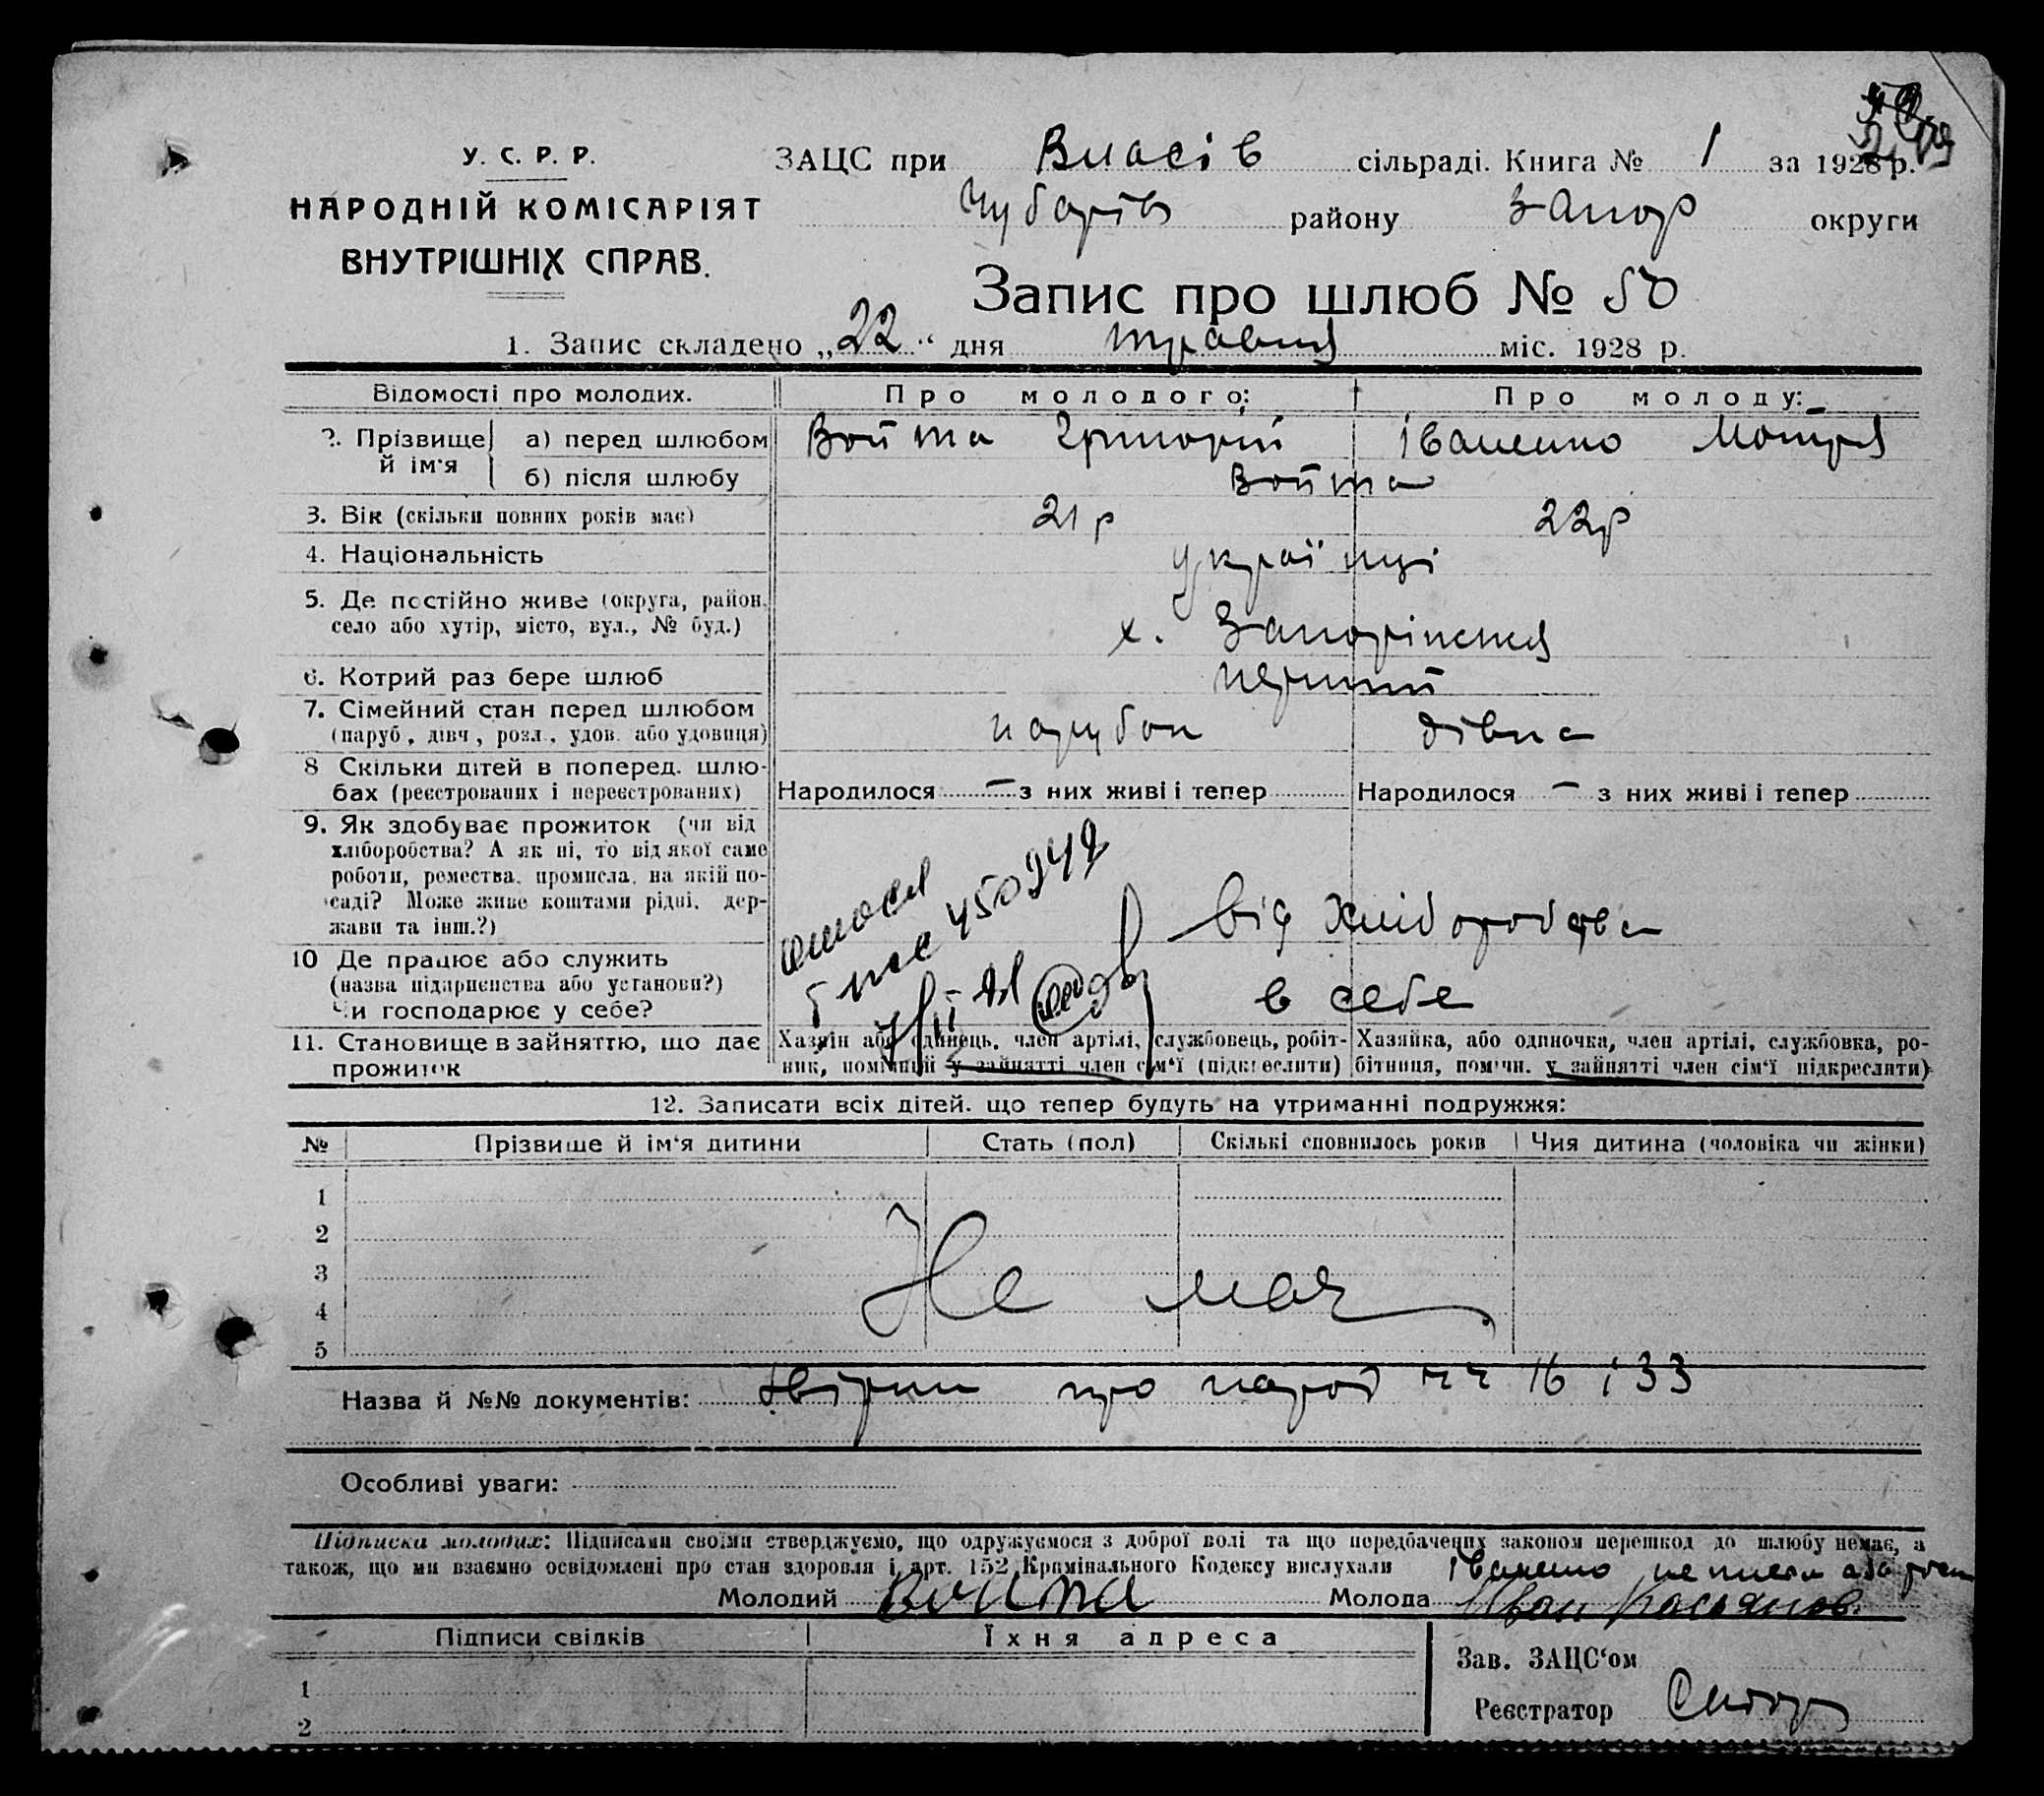 У. С. Р. Р.
НАРОДНІЙ КОМІСАРІЯТ
ВНУТРІШНІХ СПРАВ.
ЗАЦС при Власів сільраді. Книга № 1 за 1928 р.
Чубарів району Запор округи
Запис про шлюб № 50
1. Запис складено „22“ дня травня міс. 1928 р.
Відомості про молодих. Про молодого: Про молоду:
2. Прізвище й ім'я а) перед шлюбом Война Григорій Іваненко Мотря
б) після шлюбу Война
3. Вік (скільки повних років має) 21 р 22 р
4. Національність українці
5. Де постійно живе (округа, район,
село або хутір, місто, вул., № буд.) х. Запоріжжя
6. Котрий раз бере шлюб перший
7. Сімейний стан перед шлюбом
(паруб., дівч., розл., удов. або удовиця) парубок дівка
8 Скільки дітей в поперед. шлю-
бах (реєстрованих і нереєстрованих) Народилося — з них живі і тепер Народилося — з них живі і тепер
9. Як здобуває прожиток (чи від
хліборобства? А як ні, то від якої саме
роботи, ремества, промисла, на якій по-
саді? Може живе коштами рідні, дер-
жави та інш.?) від хліборобства
10 Де працює або служить
(назва підприємства або установи?)
Чи господарює у себе? в себе
11. Становище в зайняттю, що дає
прожиток
Хазяїн або одинець, член артілі, службовець, робіт-
ник, помічний у зайнятті член сім'ї (підкреслити)
Хазяйка, або одиночка, член артілі, службовка, ро-
бітниця, помічн. у зайнятті член сім'ї підкреслити)
12. Записати всіх дітей, що тепер будуть на утриманні подружжя:
№ Прізвище й ім'я дитини Стать (пол) Скількі сповнилось років Чия дитина (чоловіка чи жінки)
1
2
3
Не має
4
5
Назва й №№ документів: про народ 16 і 33
Особливі уваги:
Підписка молодих: Підписами своїми стверджуємо, що одружуємося з доброї волі та що передбачених законом перешкод до шлюбу немає, а
також, що ми взаємно освідомлені про стан здоровля і арт. 152 Кримінального Кодексу вислухали
Іваненко
Молодий Война Молода Іван
Підписи свідків Їхня адреса
Зав. ЗАЦС'ом
1
Реєстратор
2